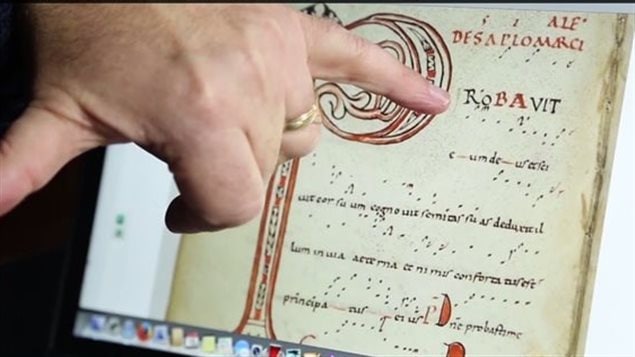 ALE
DESAPLOMARCI
ROBAVIT
e um de us et sci
uit cor su um cog no uit semitas su as deduxit il
lum in uia aeterna et ni mis confortatus est
principa tus ei us P
ne probastime